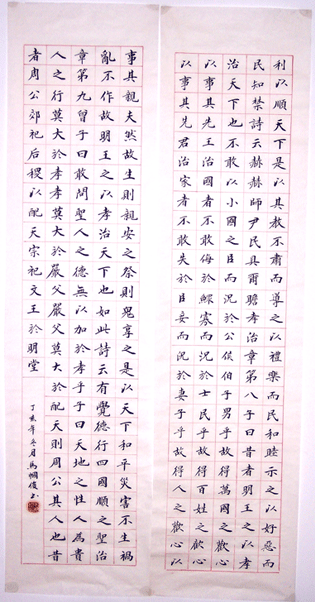 利以順天下是以其教不肅而導之以禮樂而民和睦示之以好惡而
民知禁詩云赫赫師尹民具爾瞻孝治章第八子曰昔者明王之以孝
治天下也不敢以小國之臣而況於公侯伯子男乎故得萬國之歡心
以事其先王治國者不敢侮於鰥寡而況於士民乎故得百姓之歡心
以事其先君治家者不敢失於臣妾而況於妻子乎故得人之歡心以
事其親夫然故生則親安之祭則鬼享之是以天下和平災害不生禍
亂不作故明王之以孝治天下也如此詩云有覺德行四國順之聖治
章第九曾子曰敢問聖人之德無以加於孝乎子曰天地之性人為貴
人之行莫大於孝孝莫大於嚴父嚴父莫大於配天則周公其人也昔
者周公郊祀后稷以配天宗祀文王於明堂
丁亥年冬月